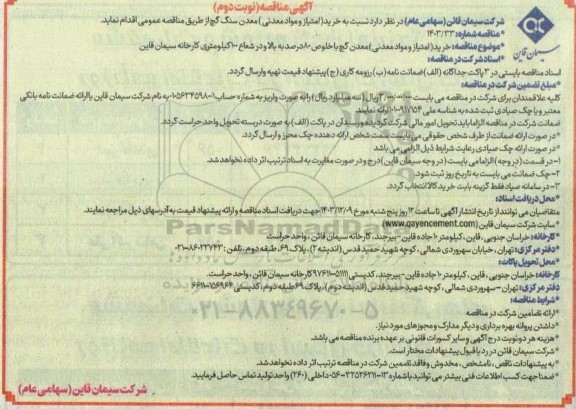 آگهی مناقصه (نوبت دوم)
شرکت سیمان قائن (سهامی عام) در نظر دارد نسبت به خرید (امتیاز و مواد معدنی) معدن سنگ گچ از طریق مناقصه عمومی اقدام نماید.
*مناقصه شماره: ۱۴۰۳/۳۳
*موضوع مناقصه: خرید (امتیاز و مواد معدنی) معدن گچ با خلوص ۸۰ درصد به بالا و در شعاع ۱۰۰ کیلومتری کارخانه سیمان قاین
سیمان قاین
*اسناد شرکت در مناقصه:
اسناد مناقصه بایستی در ۳ پاکت جداگانه (الف) ضمانت نامه (ب) رزومه کاری (ج) پیشنهاد قیمت تهیه وارسال گردد.
*مبلغ تضمین شرکت در مناقصه:
کلیه علاقمندان برای شرکت در مناقصه می بایست ریال (سه میلیارد ریال) را به صورت واریز به شماره حساب به نام شرکت سیمان قاین یا ارائه ضمانت نامه بانکی
معتبر و یا چک صیادی ثبت شده به شناسه ملی ارائه نمایند.
ضمانت شرکت در مناقصه الزاما باید تحویل امور مالی شرکت گردیده و رسید آن در پاکت (الف) به صورت دربسته تحویل واحد حراست گردد.
*در صورت ارائه ضمانت از طرف شخص حقوقی می بایست سمت شخص ارائه دهنده چک محرز و ارسال گردد.
*در صورت ارائه چک صیادی رعایت شرایط ذیل الزامی می باشد
۱-در قسمت (در وجه) الزاما می بایست (در وجه سیمان قاین) درج و در صورت مغایرت به اسناد ترتیب اثر داده نخواهد شد.
۲-چک ضمانت می بایست به تاریخ روز ثبت شود.
۳-در سامانه صیاد فقط گزینه بابت خرید کالا انتخاب گردد.
*محل دریافت اسناد:
متقاضیان می توانند از تاریخ انتشار آگهی تا ساعت ۱۲ روز پنج شنبه مورخ ۱۴۰۳/۱۲/۰۹ جهت دریافت اسناد مناقصه و ارائه پیشنهاد قیمت به آدرسهای ذیل مراجعه نمایند.
*سایت شرکت سیمان قاین (www.qayencement.com)
*کارخانه: خراسان جنوبی، قاین، کیلومتر ۱۰ جاده قاین-بیرجند، کارخانه سیمان قائن، واحد حراست
*دفتر مرکزی: تهران، خیابان سهروردی شمالی، کوچه شهید حمید قدس (اندیشه ۲)، پلاک ۶۹، طبقه دوم، تلفن:
*محل تحویل پاکات:
کارخانه: خراسان جنوبی، قاین، کیلومتر ۱۰ جاده قاین-بیرجند، کدپستی ۹۷۶۱۱-۵۱۱۱۱ کارخانه سیمان قائن، واحد حراست.
دفتر مرکزی: تهران-سهروردی شمالی، کوچه شهید حمید قدس (اندیشه دوم)، پلاک ۶۹ طبقه دوم، کدپستی
*شرایط مناقصه:
*ارائه تضامین شرکت در مناقصه
*داشتن پروانه بهره برداری و دیگر مدارک و مجوزهای مورد نیاز.
*هزینه هر دو نوبت درج آگهی و سایر کسورات قانونی بر عهده برنده مناقصه می باشد.
*شرکت سیمان قائن در رد یا قبول پیشنهادات مختار است.
*به پیشنهادات ناقص، نامشخص، مخدوش و فاقد تضمین شرکت در مناقصه ترتیب اثر داده نخواهد شد.
*ضمنا جهت کسب اطلاعات فنی بیشتر می توانید با شماره ۱۳-۳۲۵۲۶۲۱۱-۰۵۶ داخلی (۲۶۰) واحد تولید تماس حاصل فرمایید.
شرکت سیمان قاین (سهامی عام)
ParsNamadData
۰۲۱-۸۸۳۴۹۶۷۰-۵